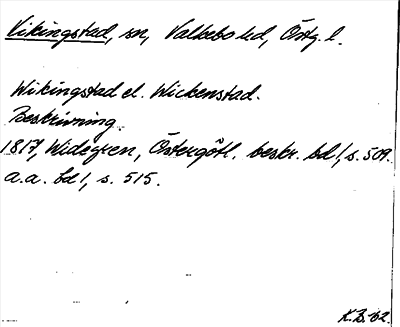 Vikingstad, sn, Valkebo hd, Östg. l.
Wikingstad el. Wickenstad.
Beskrivning.
1817, Widegren, Östergötl. beskr. bd 1, s. 509.
a.a. bd 1, s. 515.
K.B. '62.